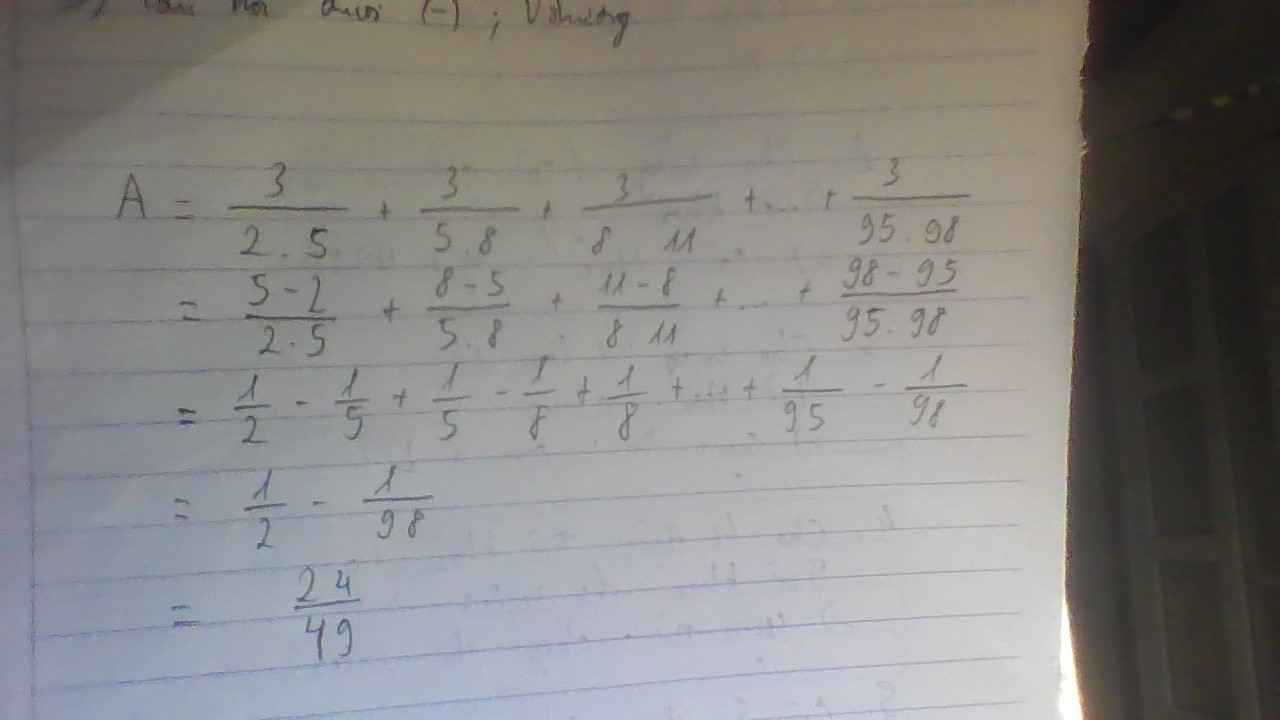 dưới (-) ; Vôhướng
A = 3/2.5 + 3/5.8 + 3/8 11 +...+ 3/95.98
= 5-2/2.5 + 8-5/5.8 + 11-8/8.11 +...+ 98-95/95.98
= 1/2 - 1/5 + 1/5 - 1/8 + 1/8 +...+ 1/95 - 1/98
= 1/2 - 1/98
= 24/49